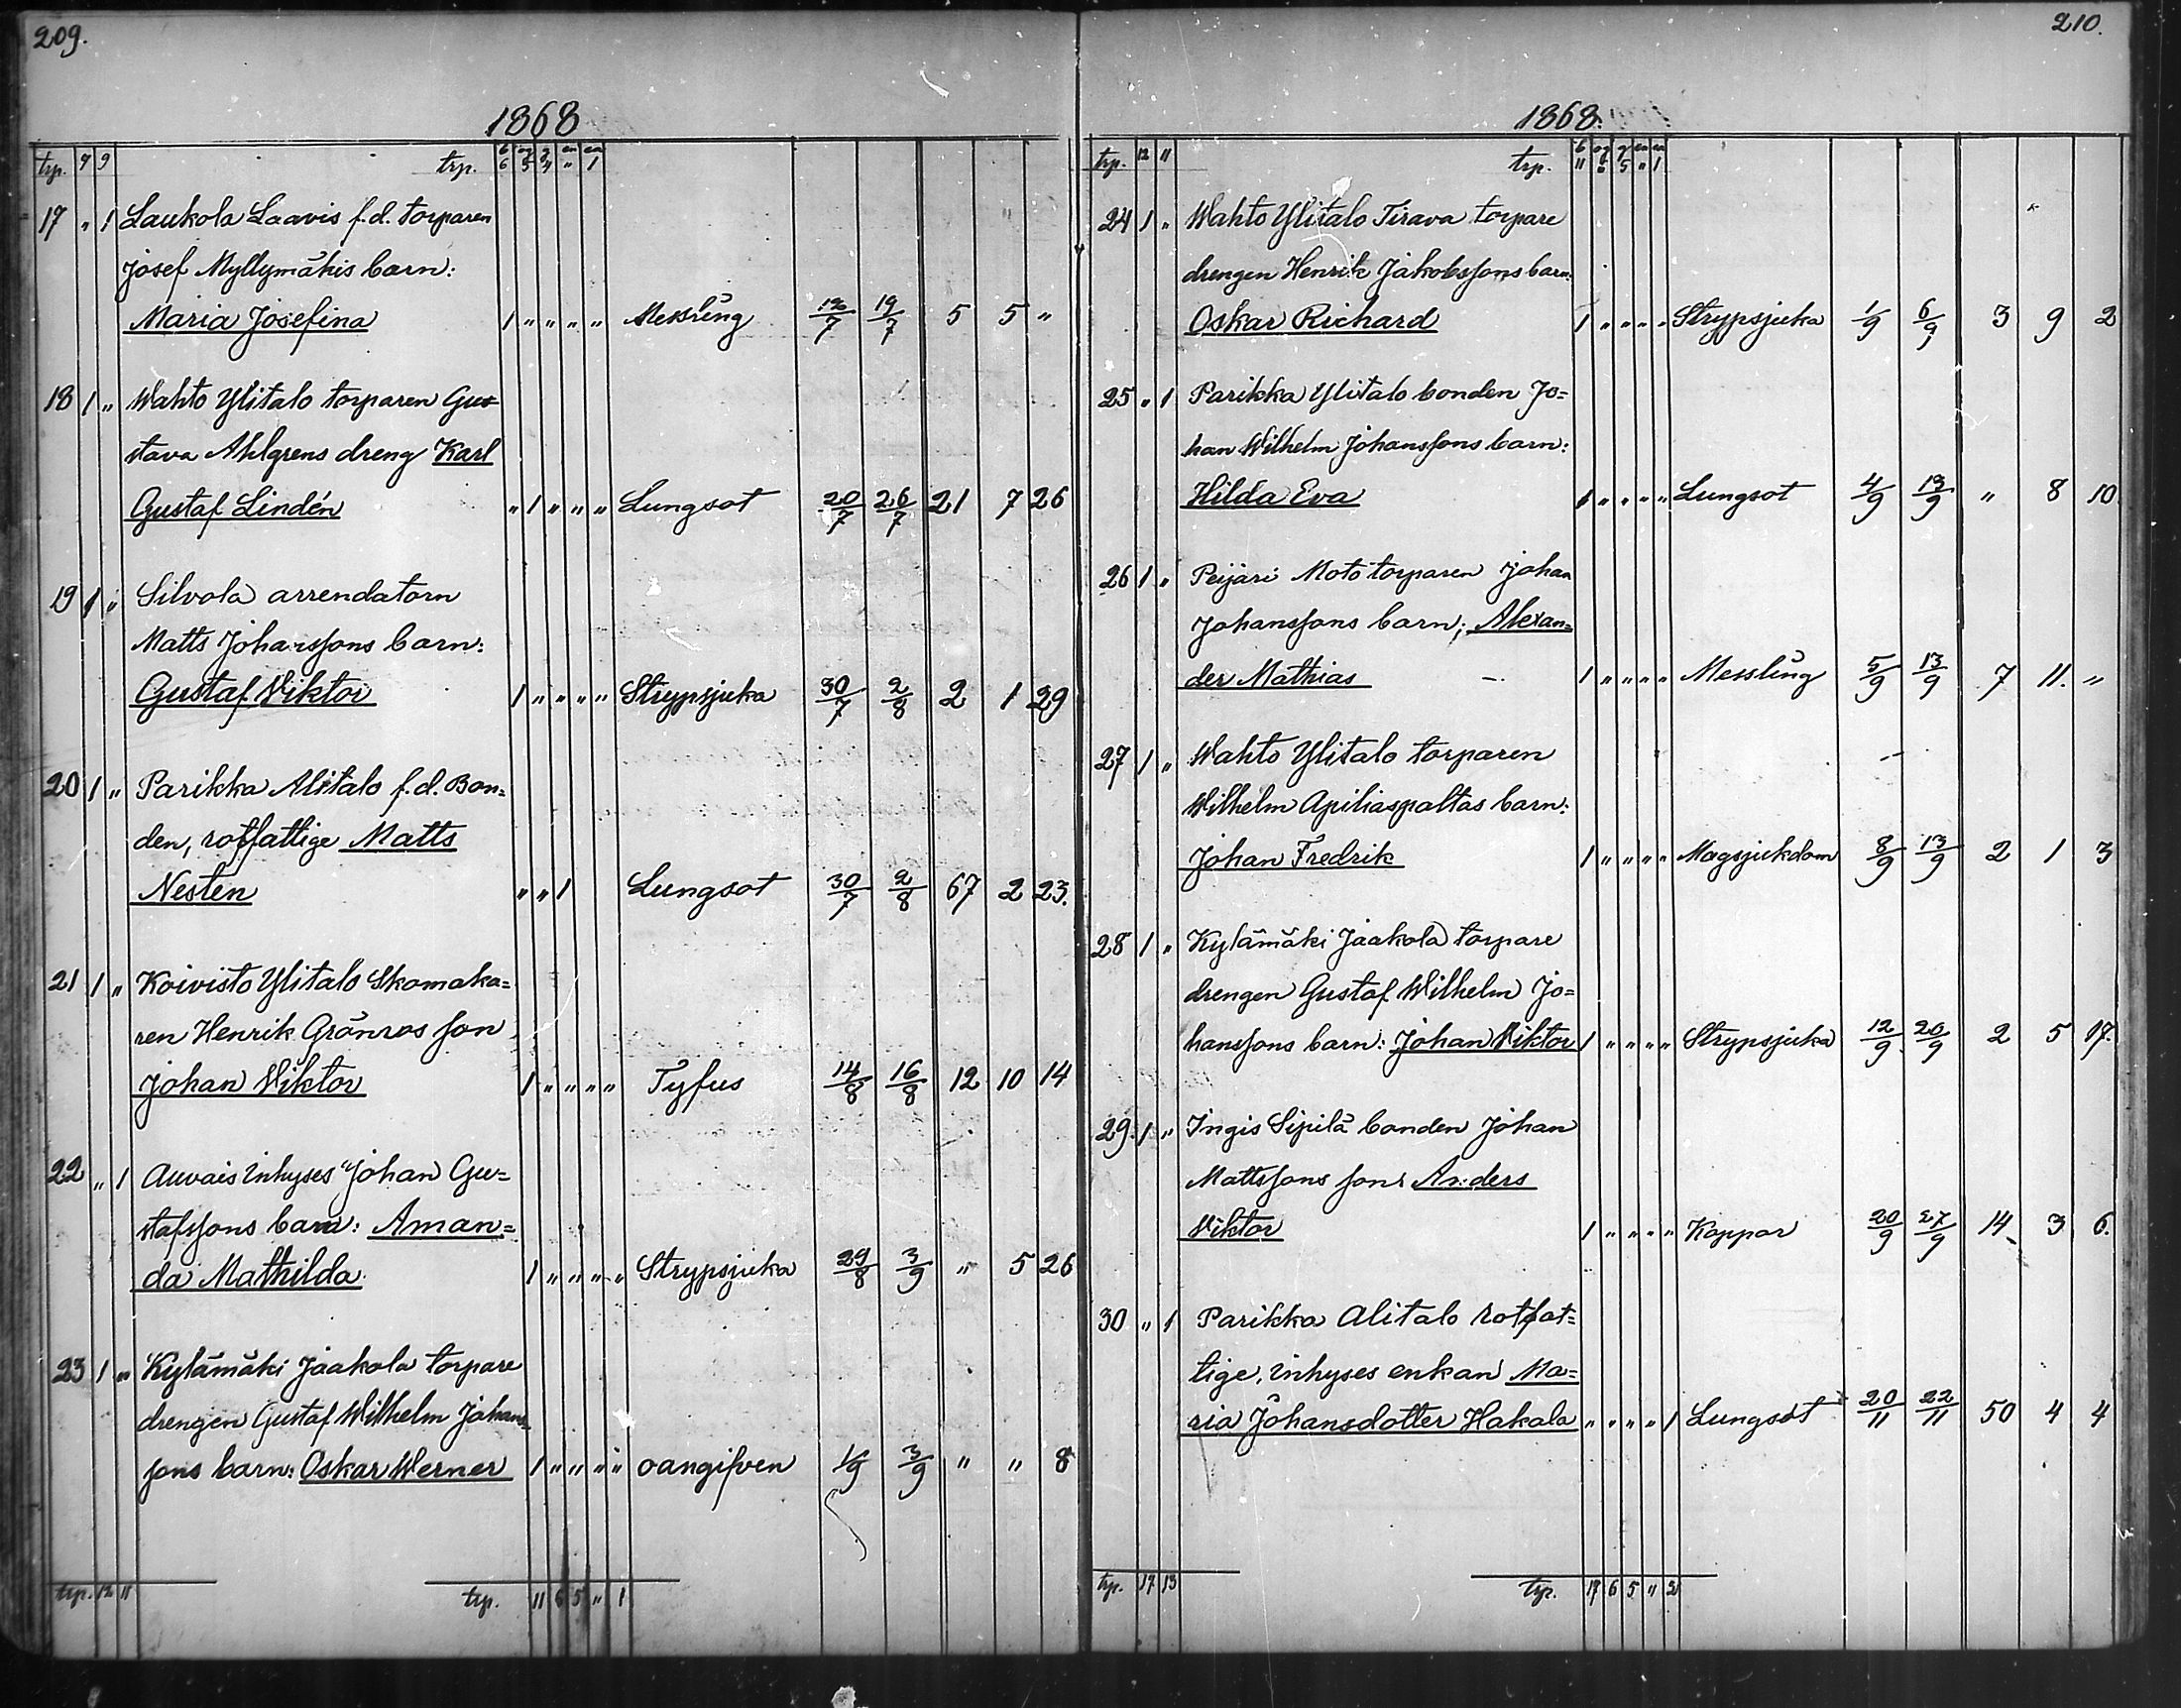 209.
1868
trp. 7 9 trp. b og g en ea
6 5 4 " 1
17 " 1 Laukola Laavis f.d. torparen
Josef Myllymäkis barn:
Maria Josefina 1 " " " " Messling 12/7 19/7 5 5 "
18 1 " Wahto Ylitalo torparen Gus=
tava Ahlgrens dreng Karl
Gustaf Lindén " 1 " " " Lungsot 20/7 26/7 21 7 26
19 1 " Silvola arrendatorn
Matts Johanssons barn:
Gustaf Viktor 1 " " " " Strypsjuka 30/7 2/8 2 1 29
20 1 " Parikka Alitalo f.d. Bon=
den, rotfattige Matts
Nesten " " 1 Lungsot 30/7 2/8 67 2 23.
21 1 " Koivisto Ylitalo Skomaka=
ren Henrik Grönros son
Johan Viktor 1 " " " " Tyfus 14/8 16/8 12 10 14
22 " 1 Auvais inhyses Johan Gu=
stafssons barn: Aman=
da Mathilda 1 " " " " Strypsjuka 29/8 3/9 " 5 26
23 1 " Kylämäki Jaakola torpare
drengen Gustaf Wilhelm Johans=
sons barn: Oskar Werner 1 " " " " oangifven 1/9 3/9 " " 8
trp. 12 11 trp. 11 6 5 " 1
210.
1868.
trp. 12 11 trp. b og g en ea
11 6 5 " 1
24 1 " Wahto Ylitalo Tirava torpare
drengen Henrik Jakobssons barn:
Oskar Richard 1 " " " " Strypsjuka 1/9 6/9 3 9 2
25 " 1 Parikka Ylitalo bonden Jo=
han Wilhelm Johanssons barn:
Hilda Eva 1 " " " " Lungsot 4/9 13/9 " 8 10.
26 1 " Peijari Moto torparen Johan
Johanssons barn; Alexan=
der Mathias 1 " " " " Messling 5/9 13/9 7 11. "
27 1 " Wahto Ylitalo torparen
Wilhelm Apiliaspaltas barn:
Johan Fredrik 1 " " " " Magsjukdom 8/9 13/9 2 1 3
28 1 " Kylämäki Jaakola torpare
drengen Gustaf Wilhelm Jo=
hanssons barn: Johan Viktor 1 " " " " Strypsjuka 12/9 20/9 2 5 17.
29. 1 " Ingis Sipilä bonden Johan
Mattssons son: Anders
Viktor 1 " " " " Koppor 20/9 27/9 14 3 6.
30 " 1 Parikka Alitalo rotfat=
tige, inhyses enkan Ma=
ria Johansdotter Hakala " " " " 1 Lungsot 20/11 22/11 50 4 4
trp. 17 13 trp. 17 6 5 " 2